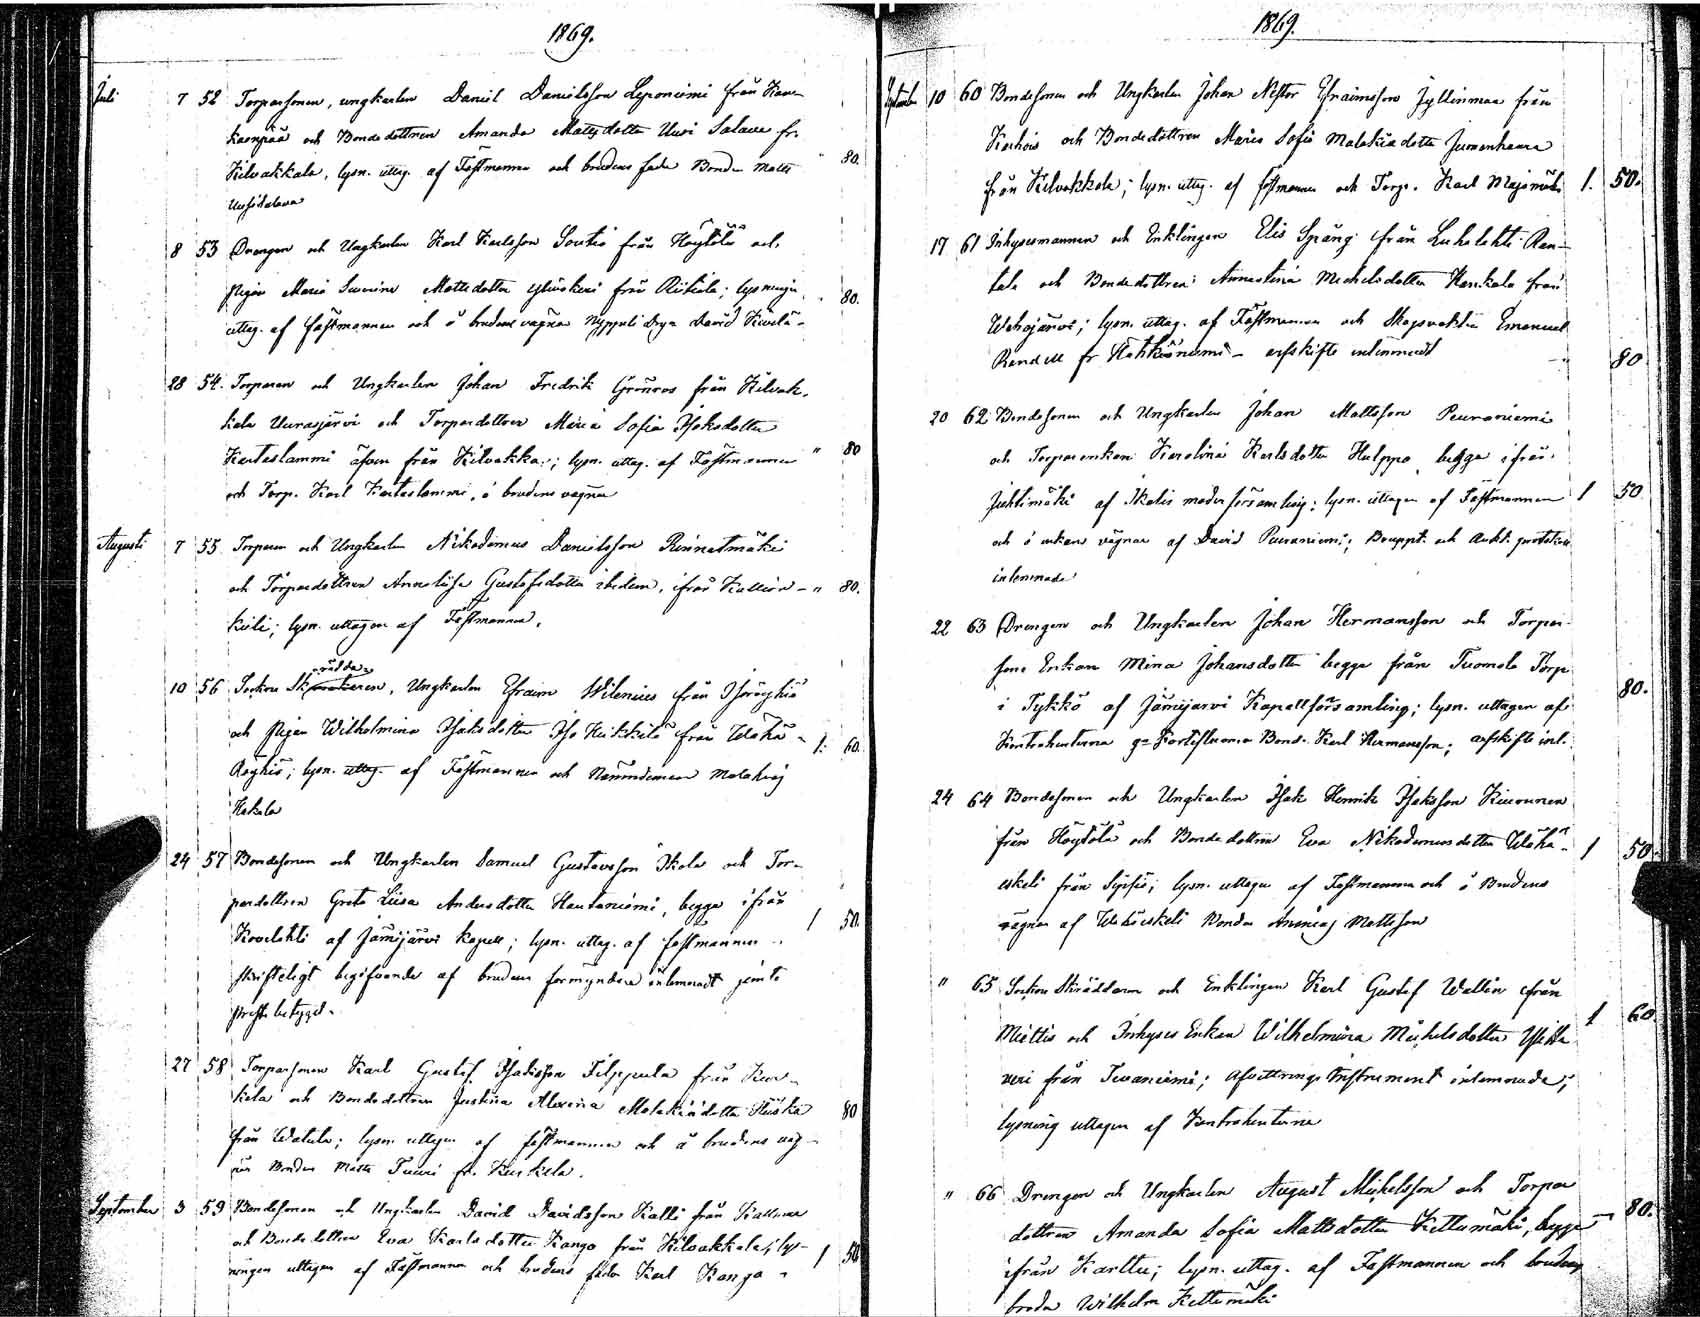 1869.
Juli 7 52 Torparsonen, ungkarlen Daniel Danielsson Leponiemi från Kan-
kaanpää och Bondedottren Amanda Mattsdotter Uusi Salava fr.
Kilvakkala, lysn. uttag. af Fästmannen och brudens fader Bonden Matts " 80.
Uusisalava
8 53 Drengen och Ungkarlen Karl Karlsson Soutio från Höytölä och
pigan Maria Mattsdotter från Riitiala; lysningen
uttag. af fästmannen och å brudens vägnar David " 80.
28 54. Torparen och Ungkarlen Johan Fredrik Grönros från Kilvak-
kala Uurasjärvi och Torparedottren Maria Sofia Isaksdotter
Kartaslammi äfven från Kilvakka.; lysn. uttag. af Fästmannen " 80
och Torp. Karl Kartaslammi, å brudens vägnar
Augusti 7 55 Torparen och Ungkarlen Nikodemus Danielsson Rinnatmäki
och Torparedottren Annalisa Gustafsdotter ibidem, ifrån " 80.
lysn. uttagen af Fästmannen.
10 56 Socken Skräddaren, Ungkarlen Efraim Wilenius från Isoröyhiö
och pigan Wilhelmina Isaksdotter Iso Heikkilä från Wähä- 1. 60.
Röyhiö; lysn. uttag. af Fästmannen och Nämndeman Malakias
Hakala
24 57 Bondesonen och Ungkarlen Samuel Gustavsson Skola och Tor-
paredottren Greta Lisa Andersdotter Hautaniemi, begge ifrån
Kovelahti af Jämijärvi kapell; lysn. uttag. af fästmannen 1 50.
skrifteligt begifvande af brudens förmyndare inlemnadt jemte
prestbetyget.
27 58 Torparsonen Karl Gustaf Isaksson Filppula från Kur-
kela och Bondedottren Justina Alexina Malakiasdotter 80
från Watula; lysn. uttagen af fästmannen och å brudens väg-
nar Bonden Matts Tuuri fr. Kurkela.
September 3 59 Bondesonen och Ungkarlen David Davidsson Kalli från
och Bondedottren Eva Karlsdotter Kanga från Kilvakkala; lys-
ningen uttagen af Fästmannen och brudens fader Karl Kanga 1 50
1869.
September 10 60 Bondesonen och Ungkarlen Johan Nestor Efraimsson Jyllinmaa från
Karhois och Bondedottren Maria Sofia Malakiadotter Jumenhaara
från Kilvakkala; lysn. uttag. af fästmannen och Torp. Karl Majamäki 1. 50.
17 61 Inhysesmannen och Enklingen Elis Spång från Luhalahti Ran-
tala och Bondedottren Annastina Michelsdotter Hankala från
Wehojärvi; lysn. uttag. af Fästmannen och Skogsvaktare Emanuel
Randell fr - arfskifte inlemnadt 80
20 62 Bondesonen och Ungkarlen Johan Mattsson Peuraniemi
och Torpareenkan Karolina Karlsdotter Hulppo, begge ifrån
Juhtimäki af Ikalis moderförsamling; lysn. uttagen af Fästmannen 1 50
och å enkans vägnar af David Peuraniemi; Bouppt. och Aukt. protokoll
inlemnade
22 63 Drengen och Ungkarlen Johan Hermansson och Torpar-
sons Enkan Mina Johansdotter begge från Tuomela Torp
i Tykkö af Jämijärvi Kapellförsamling; lysn. uttagen af 80.
Kontrahenterna Bond. Karl Hermansson; arfskifte inl.
24 64 Bondesonen och Ungkarlen Isak Henrik Isaksson Kiuronen
från Höytölä och Bondedottren Eva Nikodemusdotter Wähä- 1 50.
eskeli från Sipsiö; lysn. uttagen af Fästmannen och å Brudens
vägnar af Wähäeskeli Bonden Ananias Mattsson
" 65 Socken Skräddaren och Enklingen Karl Gustaf Wallin från
Miettis och Inhyses Enkan Wilhelmina Michelsdotter 1 60.
från Tevaniemi; Afvittrings Instrument inlemnade;
lysning uttagen af Kontrahenterna
" 66 Drengen och Ungkarlen August Michelsson och Torpar
dottren Amanda Sofia Mattsdotter Kettumäki, begge - 80.
ifrån Karttu; lysn. uttag. af Fästmannen och brudens
broder Wilhelm Kettumäki